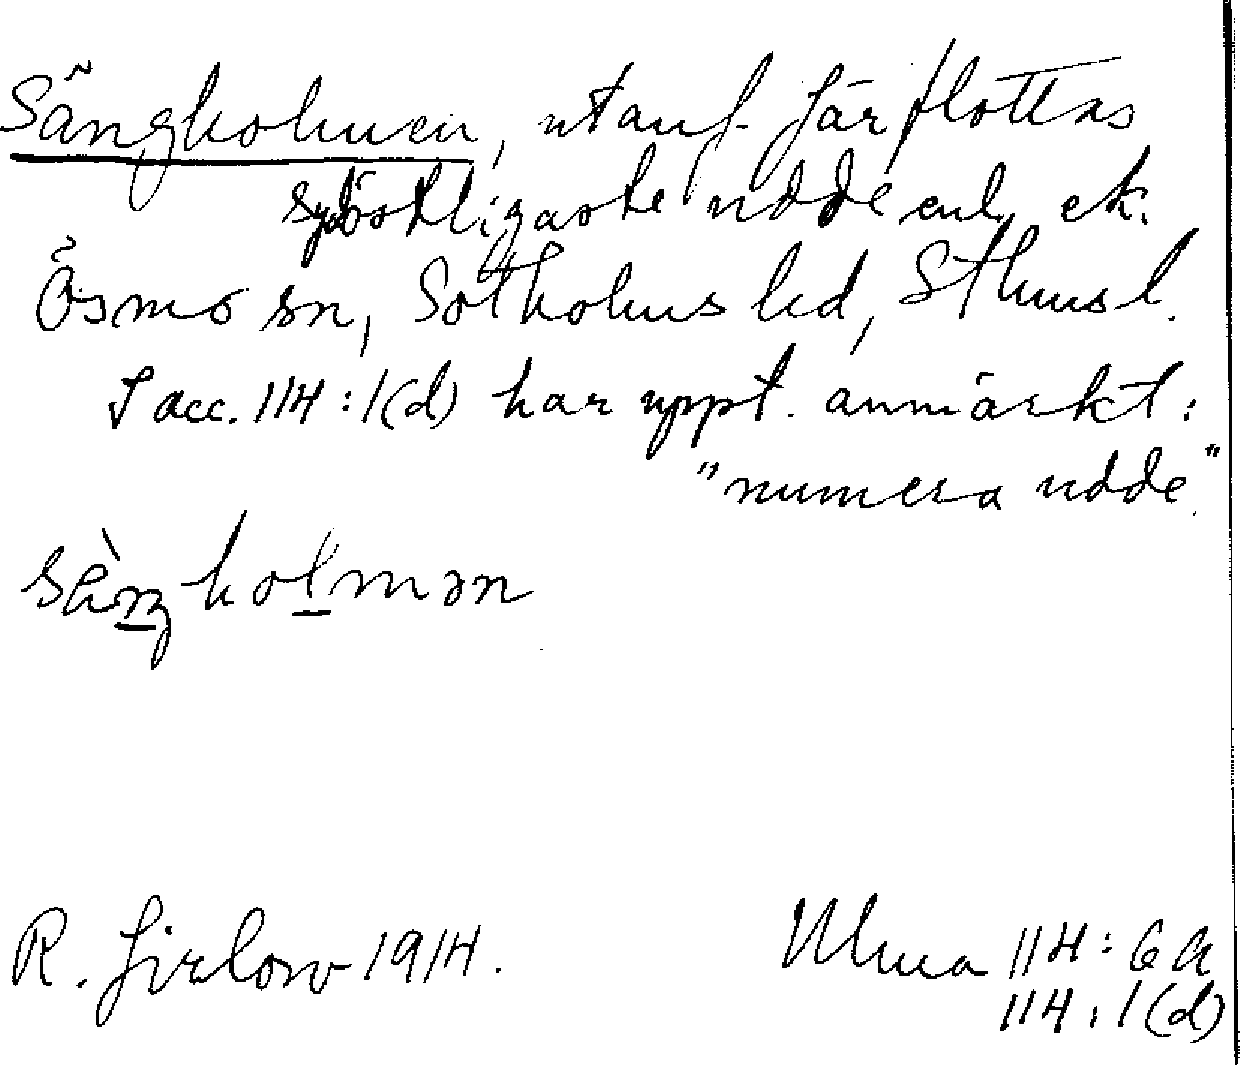 Sängholmen, utanf. Järflottas
sydöstligaste udde enl. ek.
Ösmo sn, Sotholms hd, Sthms l.
I acc. 114:1(d) har uppt. anmärkt:
"numera udde."
sèŋholmən
R. Jirlow 1914. Ulma 114:6a
114:1(d)